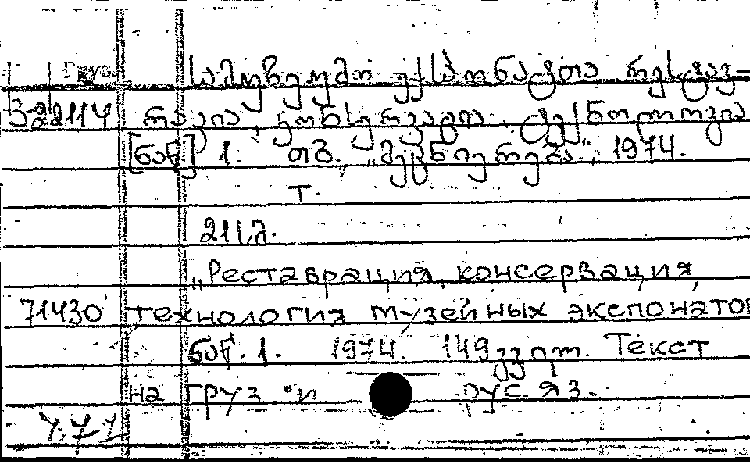 სამუზეუმო ექსპონატთა რესტავ-
322114 რაცია, კონსერვაცია, ტექნოლოგია
[ნაწ] 1. თბ. „მეცნიერება“, 1974.
Т.
211.
„Реставрация, консервация,
71430 технология музейных экспонатов
ნაწ. 1. 1974. 149 გვერ. Текст
на груз. и рус. яз.